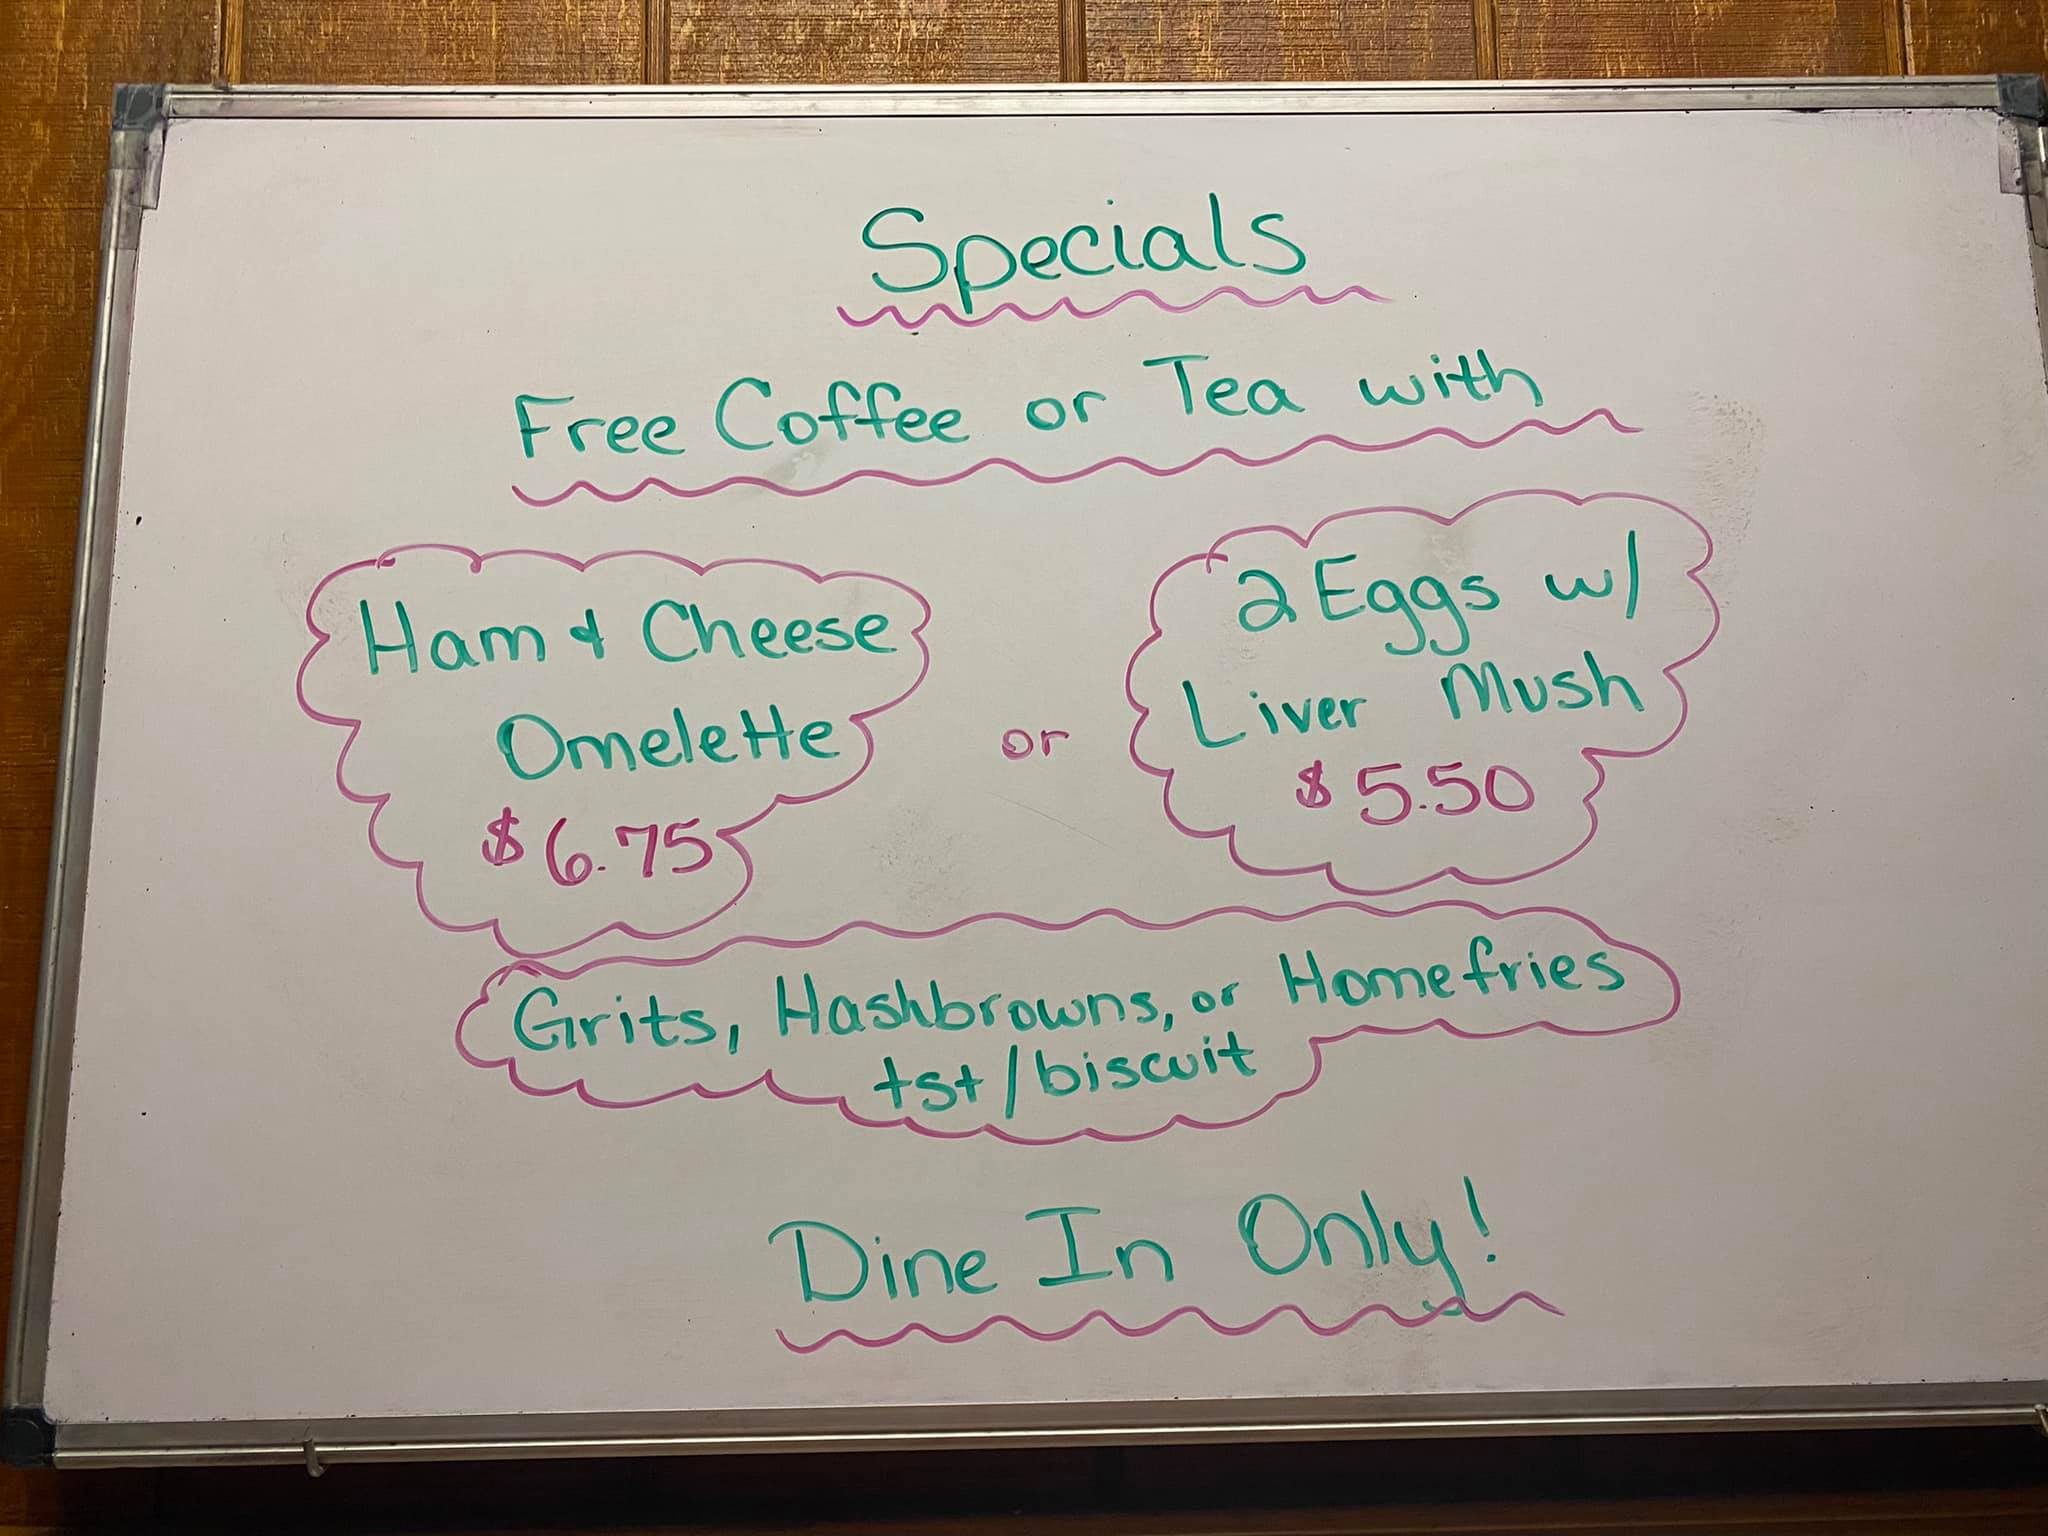 Specials
Free Coffee or Tea with
Ham & Cheese
Omelette
$6.75
or
2 Eggs w/
Liver Mush
$5.50
Grits, Hashbrowns, or Homefries
tst/biscuit
Dine In Only!